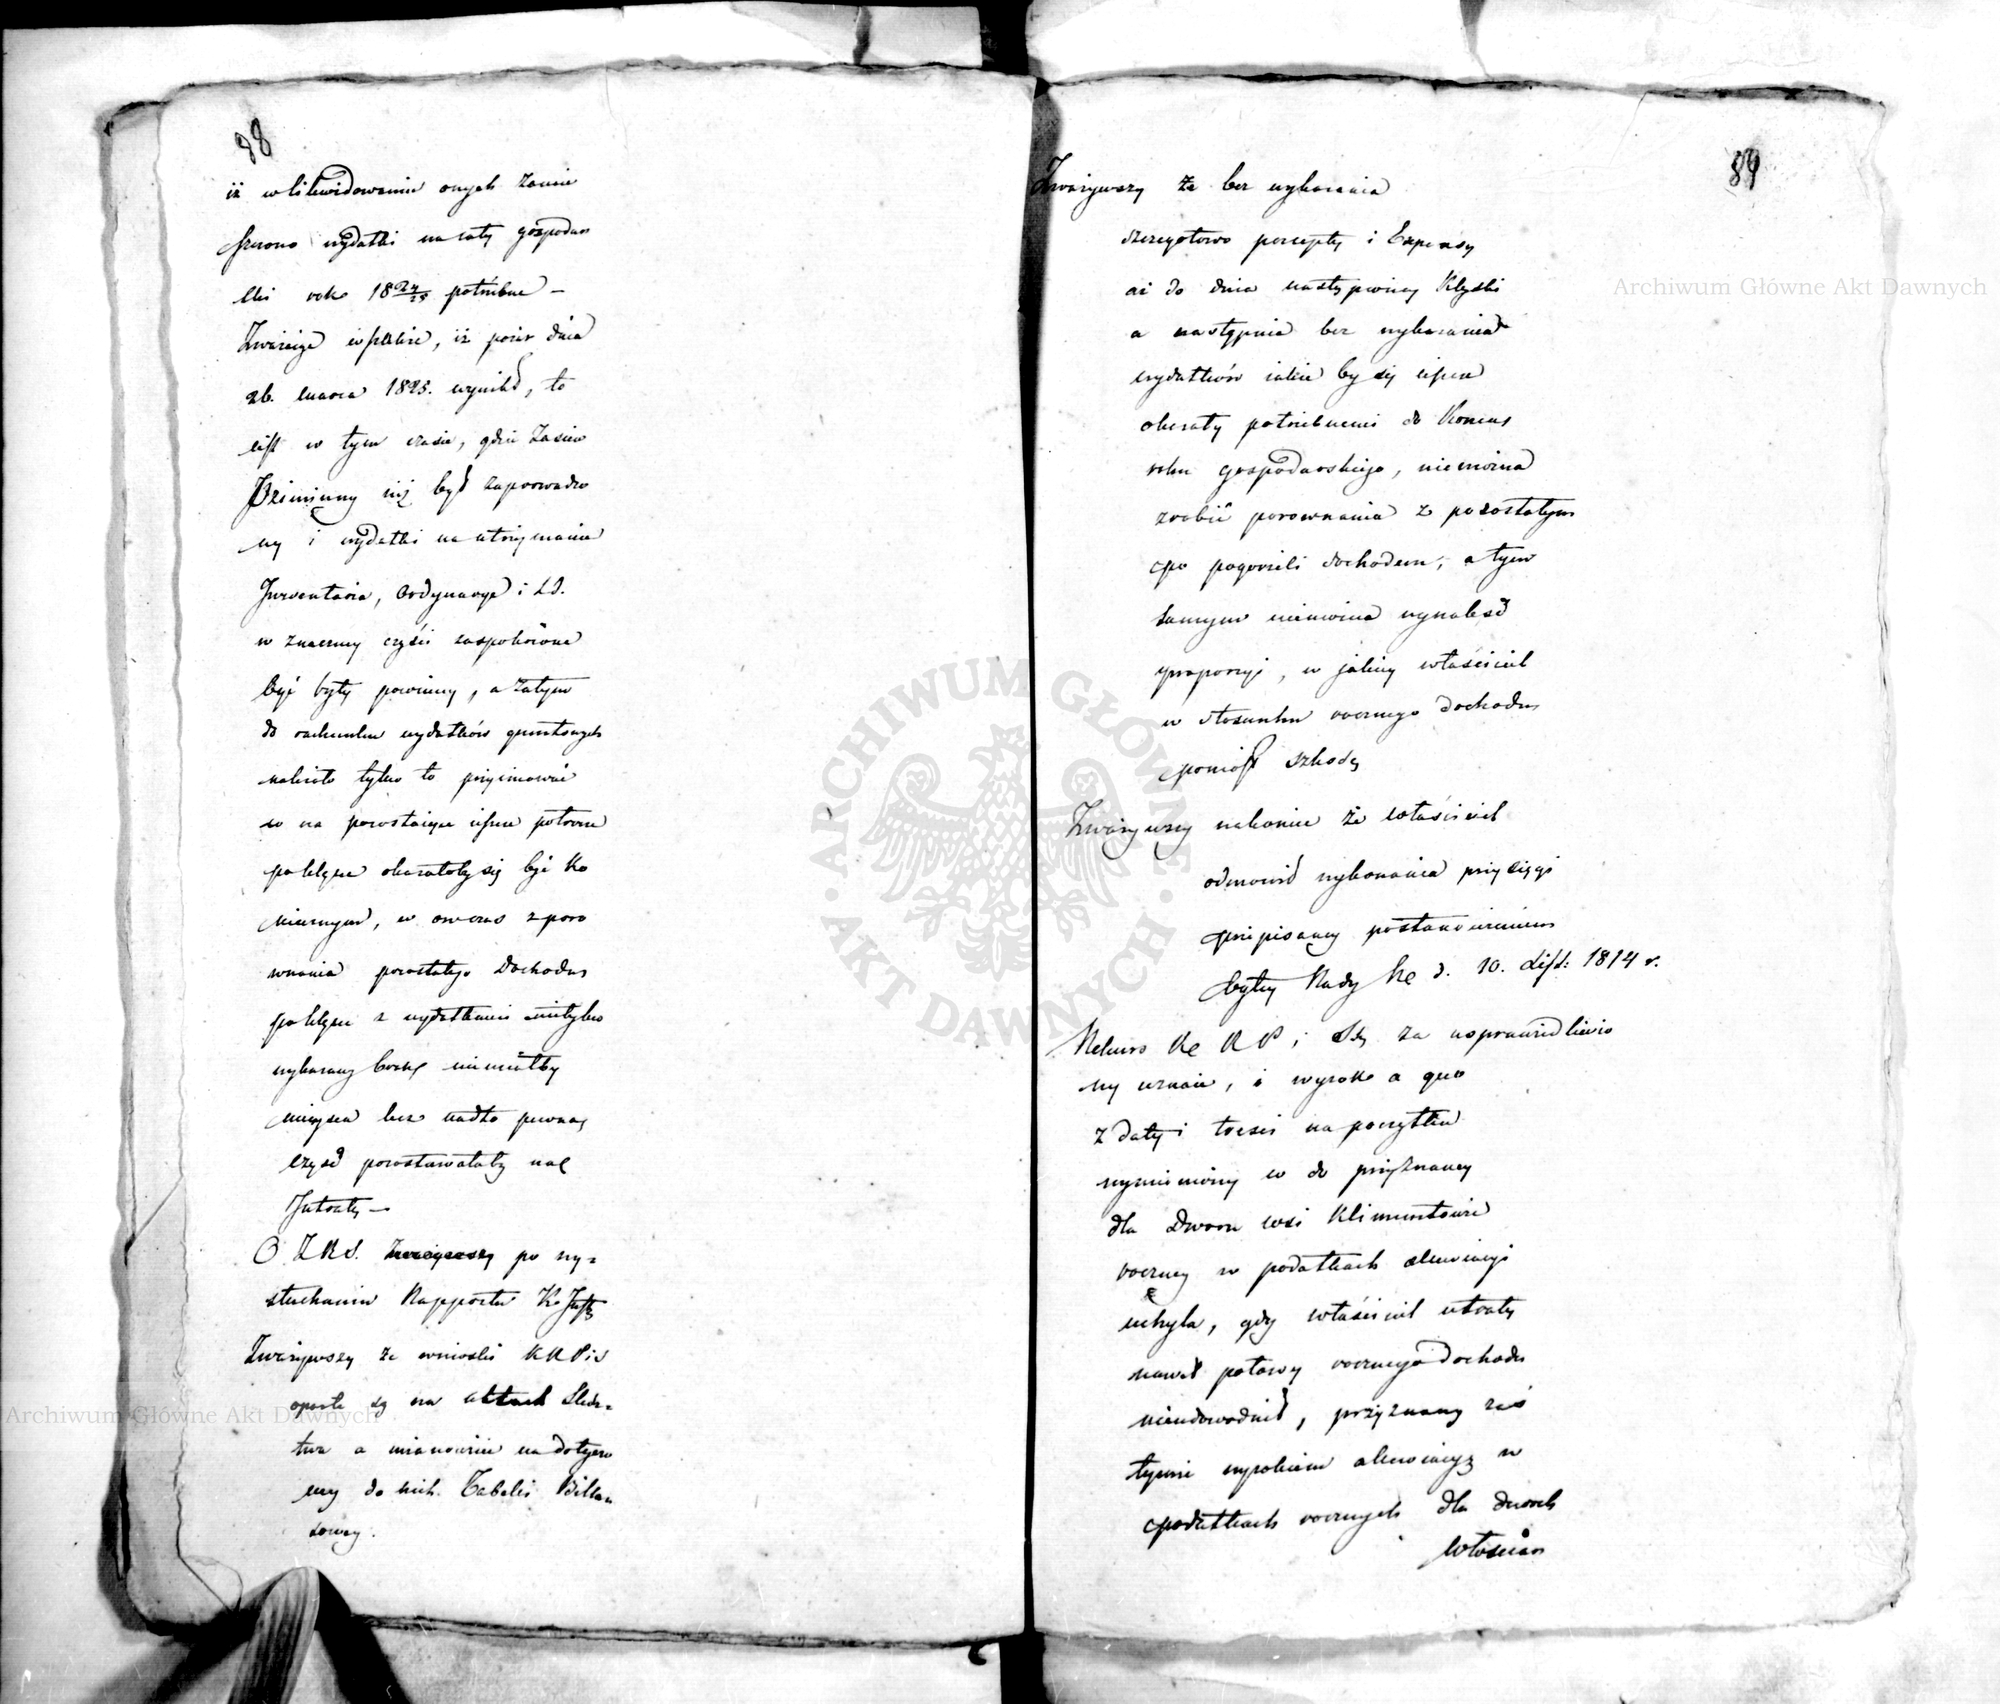 88
iż w likwidowaniu onych zamie
szczono wydatki na cały gospodar
ski rok 1824/25 potrzebne —
Zważając wszakże, iż pożar dnia
26. marca 1825. wynikł, to
iest w tym czasie, gdzie zasiew
Ozimiany iuż był zaprowadzo
ny i wydatki na utrzymanie
Inwentarza, Ordynaryę i t.d.
w znaczney części zaspokoione
być były powinny, a zatym
do rachunku wydatków gruntowych
należało tylko to przyimować
co na pozostaiące ieszcze potrzeby
po klęsce okazałoby się być Ko
niecznym, w owczas z poró
wnania pozostałego Dochodu
po klęsce z wydatkami nietylko
wykazany brak nie miałby
mieysca lecz nadto pewna
część pozostawałaby na
Intraty —
O. Z. R. S. po wy=
słuchaniu Rapportu K. Instr
Zważywszy że wnioski KRPiS
oparte są na aktach śledz=
twa a mianowicie na dołączo
ney do nich Tabelli Billan
sowey.
89
Zważywszy że bez wykazania
szczegółowo percepty i Expensy
aż do dnia nastąpioney Klęski
a następnie bez wykazania
wydatków iakie by się ieszcze
okazały potrzebnemi do Końca
roku gospodarskiego, niemożna
zrobić porównania z pozostałym
po pogorzeli dochodem, a tym
samym niemożna wynaleść
proporcyi, w jakiey właściciel
w stosunku rocznego dochodu
poniósł szkodę
Zważywszy nakoniec że właściciel
odmówił wykonania przysięgi
przepisaney postanowieniem
byłey Rady Kę d. 10. List: 1814 r.
Rekurs Kę R P i S za usprawiedliwio
ny uznaie, i wyrok a quo
z daty i treści na początku
wymieniony co do przyznaney
dla Dworu wsi Klimuntowie
roczney w podatkach allewiacyi
uchyla, gdy właściciel utraty
nawet połowy rocznego dochodu
nieudowodnił, przyznaną zaś
tymże wyrokiem allewiacyą w
podatkach rocznych dla dwóch
włościan
Archiwum Główne Akt Dawnych
Archiwum Główne Akt Dawnych
ARCHIWUM GŁÓWNE AKT DAWNYCH